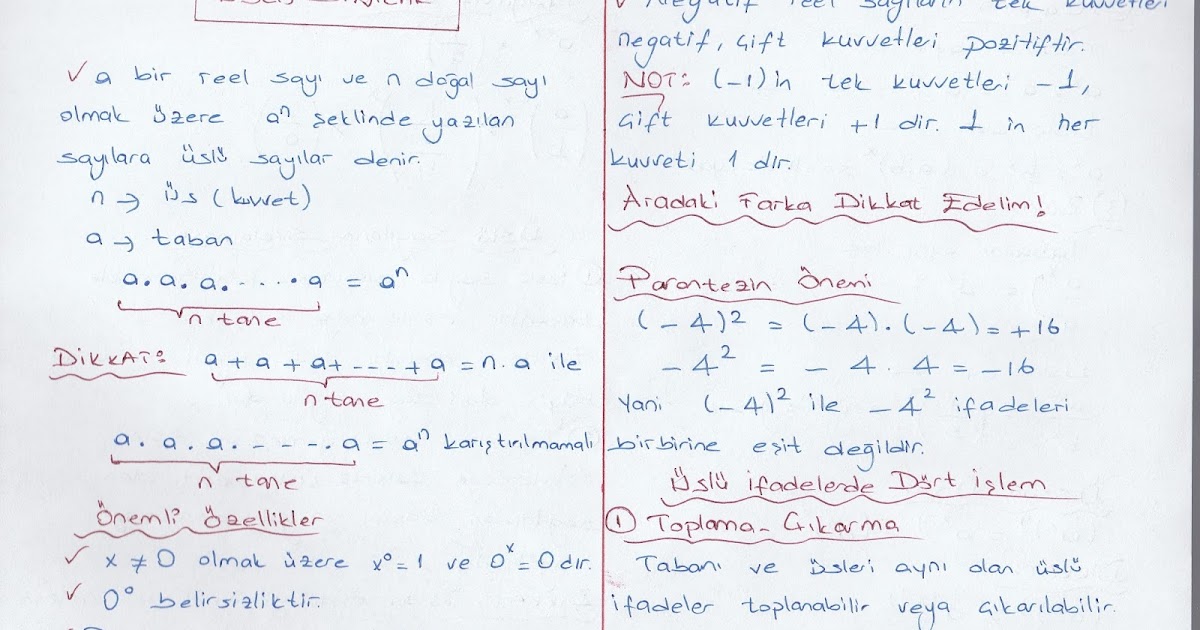 ✓ a bir reel sayı ve n doğal sayı
olmak üzere aⁿ şeklinde yazılan
sayılara üslü sayılar denir.
n → üs (kuvvet)
a → taban
a . a . a . - - - . a = aⁿ
n tane
DİKKAT: a + a + a + - - - + a = n . a ile
n tane
a . a . a . - - - . a = aⁿ karıştırılmamalı
n tane
Önemli Özellikler
✓ x ≠ 0 olmak üzere x⁰ = 1 ve 0ˣ = 0 dır.
✓ 0⁰ belirsizliktir.
✓ Negatif reel sayıların tek kuvvetleri
negatif, çift kuvvetleri pozitiftir.
NOT: (-1)in tek kuvvetleri -1,
çift kuvvetleri +1 dir. 1 in her
kuvveti 1 dır.
Aradaki Farka Dikkat Edelim!
Parantezin Önemi
(-4)² = (-4) . (-4) = +16
-4² = - 4 . 4 = -16
Yani (-4)² ile -4² ifadeleri
birbirine eşit değildir.
Üslü ifadelerde Dört işlem
① Toplama - Çıkarma
Tabanı ve üsleri aynı olan üslü
ifadeler toplanabilir veya çıkarılabilir.